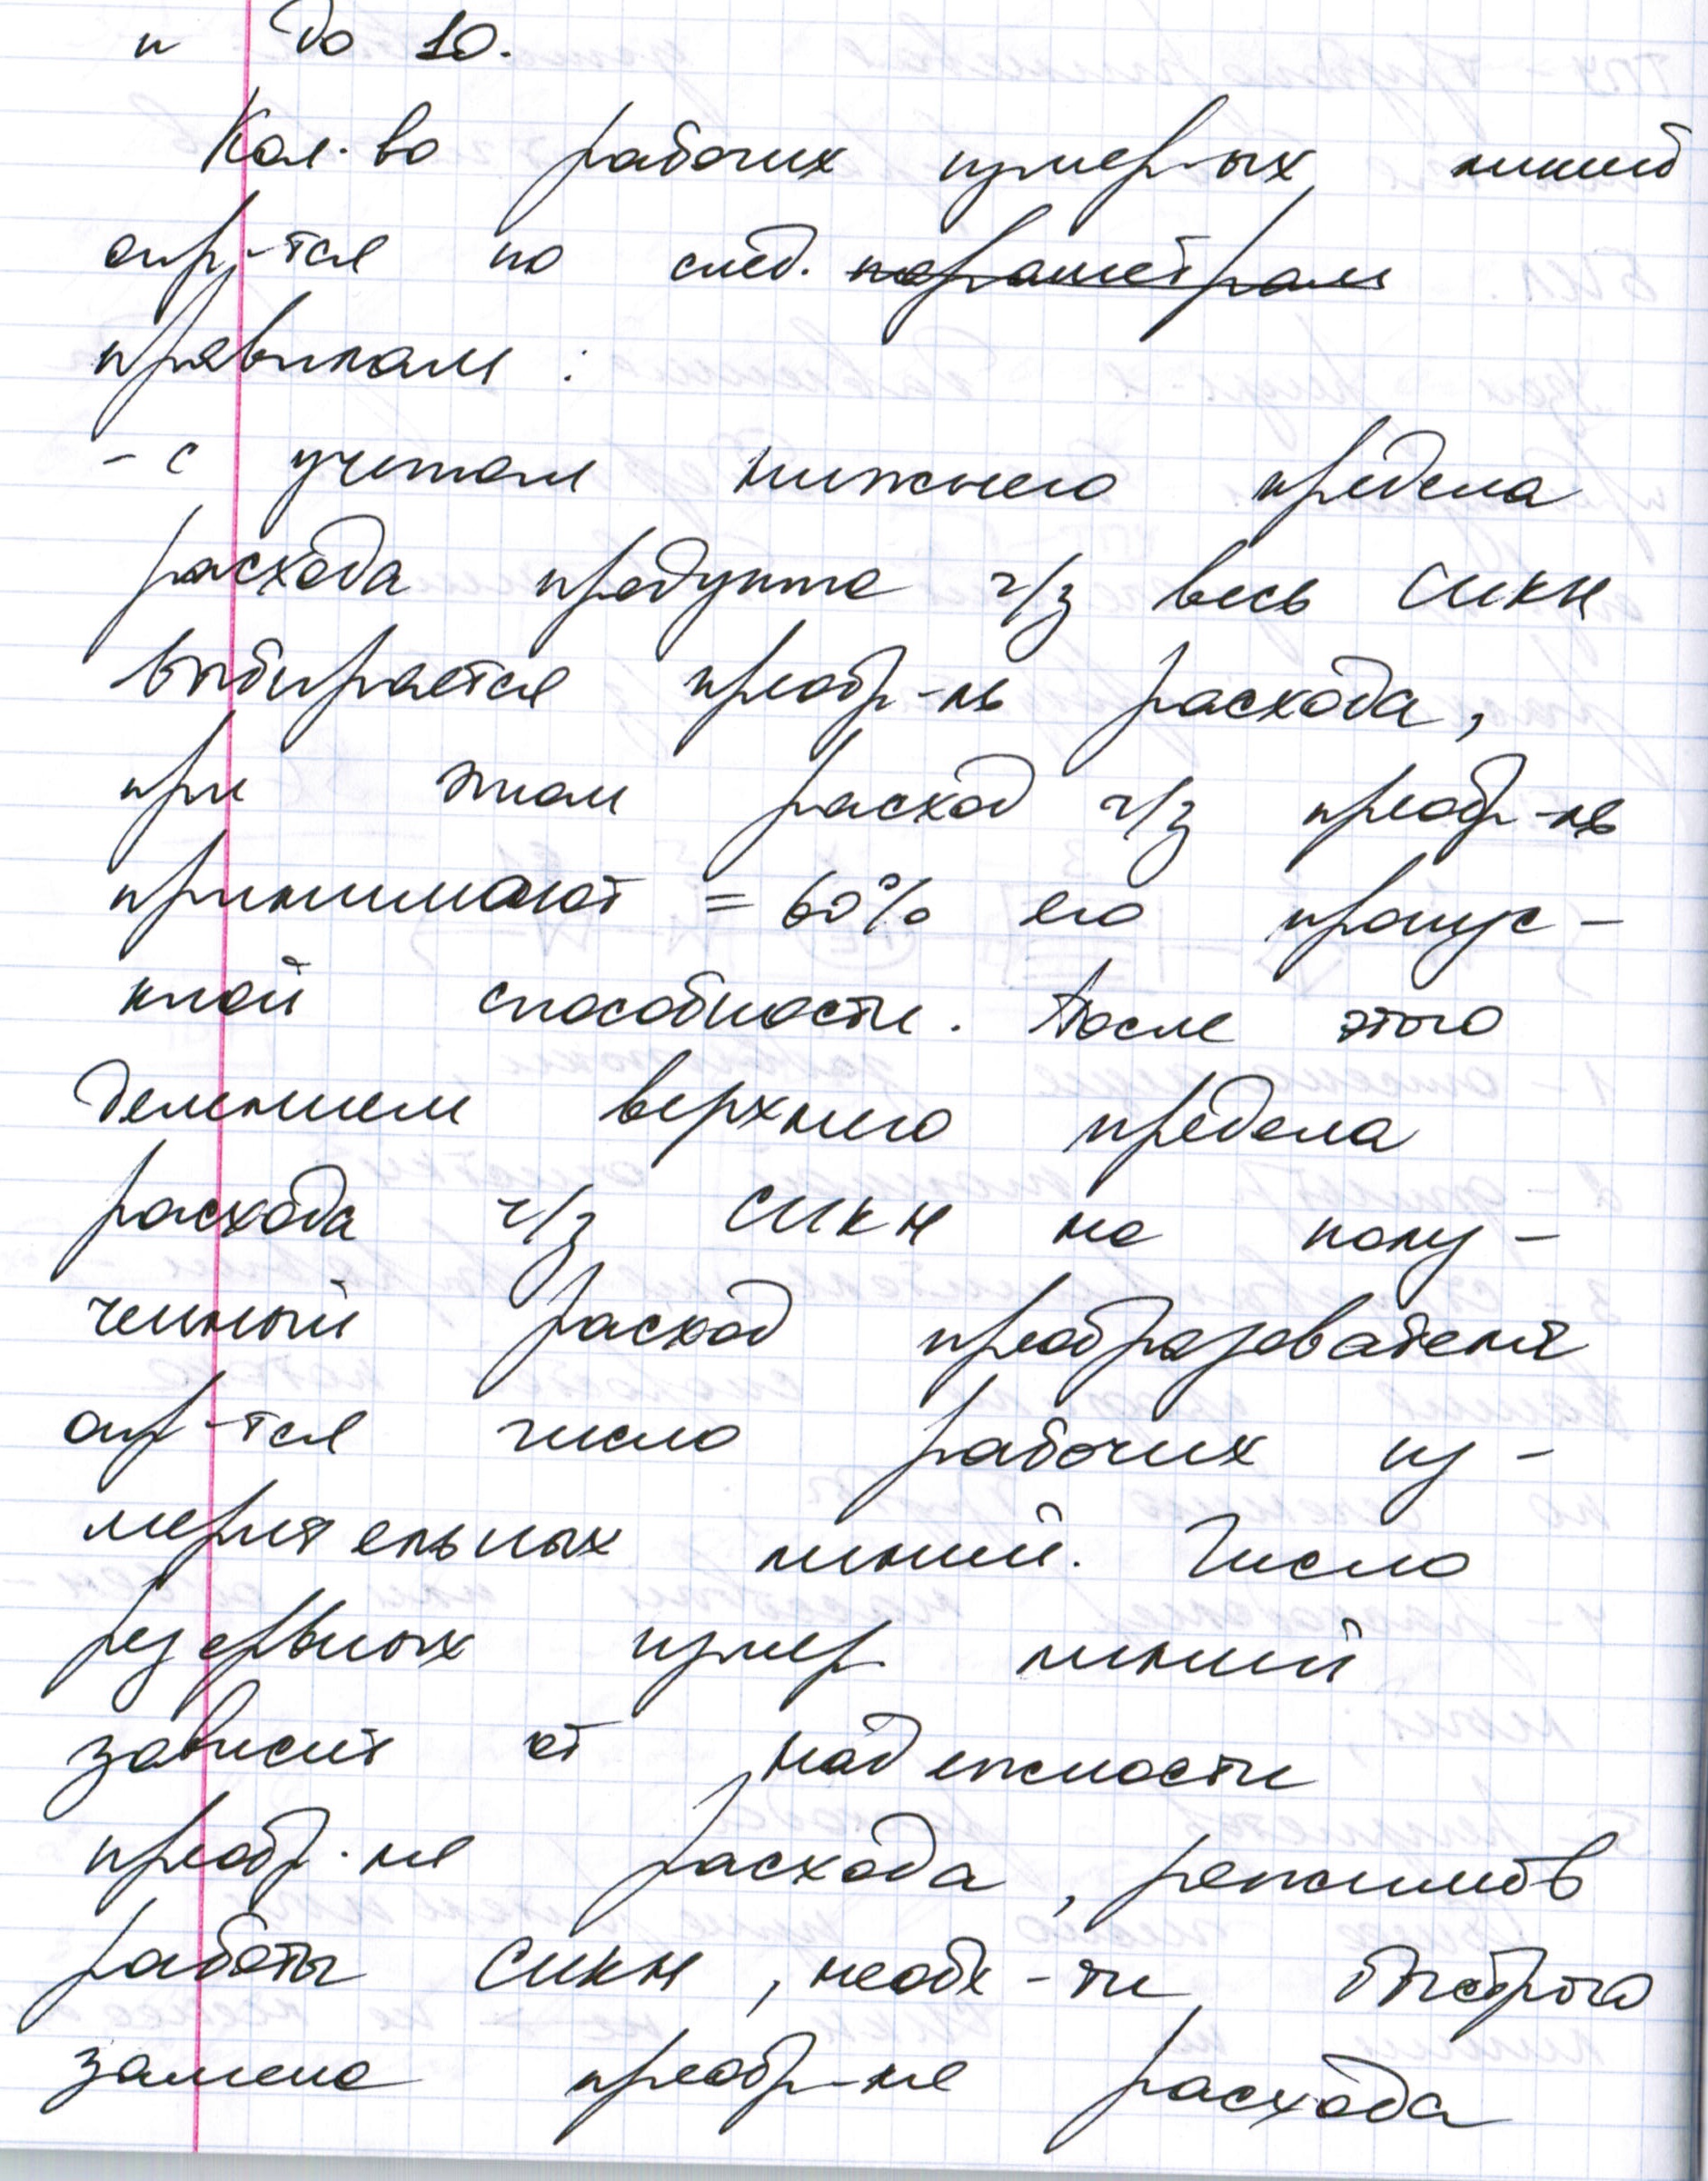 и до 10.
Кол-во рабочих измер-ых линий
опр-тся по след. параметрам
правилам :
- с учетом нижнего предела
расхода продукта ч/з весь СИКН
выбирается преобр-ль расхода,
при этом расход ч/з преобр-ль
принимают = 60% его пропус-
кной способности. После этого
делением верхнего предела
расхода ч/з СИКН на полу-
ченный расход преобразователя
опр-тся число рабочих из-
мерительных линий. Число
резервных измер линий
зависит от надежности
преобр-ля расхода, режимов
работы СИКН, необх-ти быстрого
замена преобр-ля расхода